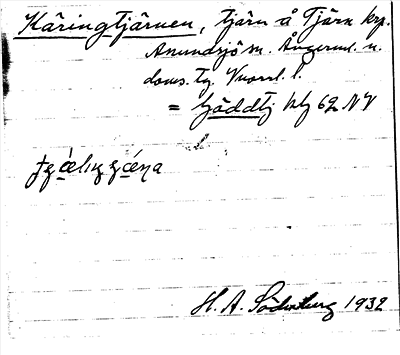 Käringtjärnen, tjärn å Tjärn krp.
Anundsjö sn. Ångerml. n.
doms. tg. Vnorrl. l.
= Gäddtj kbl 62 NV
H. A. Söderberg 1932